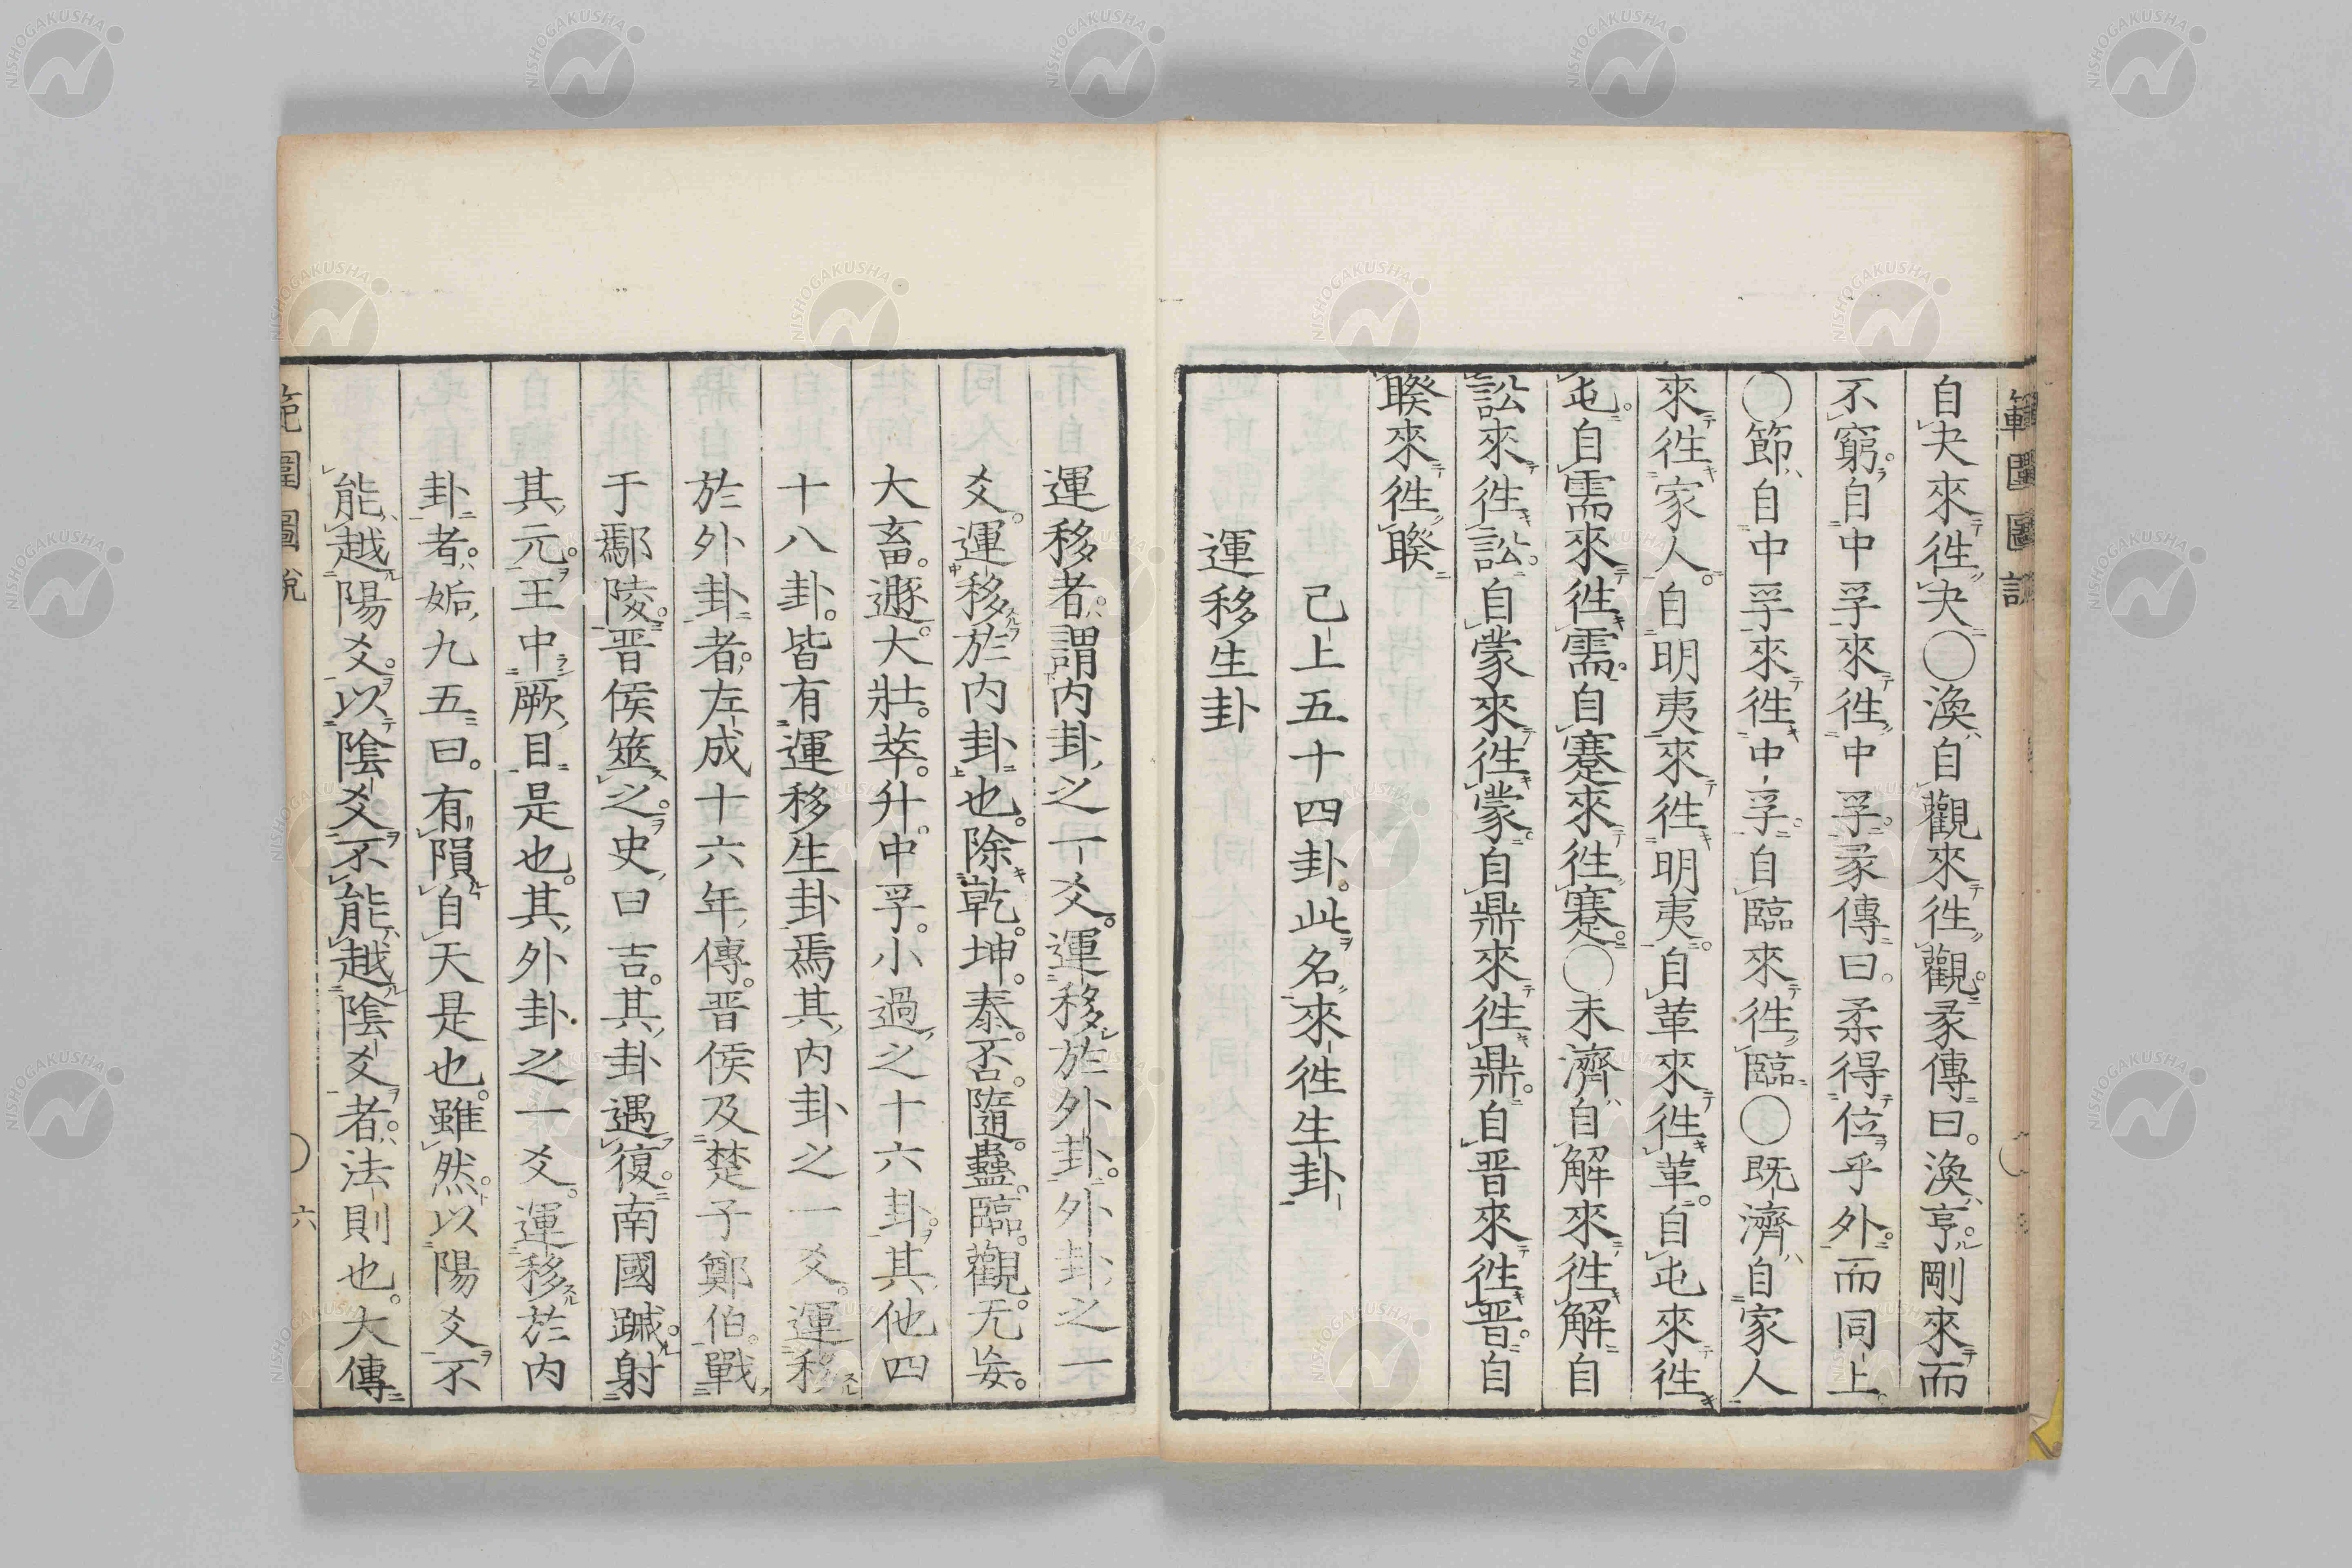 範圍圖說
自夬來徃夬〇渙自觀來徃觀彖傳曰渙亨剛來而
不窮自中孚來徃中孚彖傳曰柔得位乎外而同上
〇節自中孚來徃中孚自臨來徃臨〇既濟自家人
來徃家人自明夷來徃明夷自革來徃革自屯來徃
屯自需來徃需自蹇來徃蹇〇未濟自解來徃解自
訟來徃訟自蒙來徃蒙自鼎來徃鼎自晋來徃晋自
睽來徃睽
己上五十四卦此名來徃生卦
運移生卦
運移者謂内卦之一爻運移於外卦外卦之一
爻運移於内卦也除乾坤泰否隨蠱臨觀无妄
大畜遯大壯萃升中孚小過之十六卦其他四
十八卦皆有運移生卦焉其内卦之一爻運移
於外卦者左成十六年傳晋侯及楚子鄭伯戰
于鄢陵晋侯筮之史曰吉其卦遇復南國蹙射
其元王中厥目是也其外卦之一爻運移於内
卦者姤九五曰有隕自天是也雖然以陽爻不
能越陽爻以陰爻不能越陰爻者法則也大傳
範圍圖說
〇六
NISHOGAKUSHA